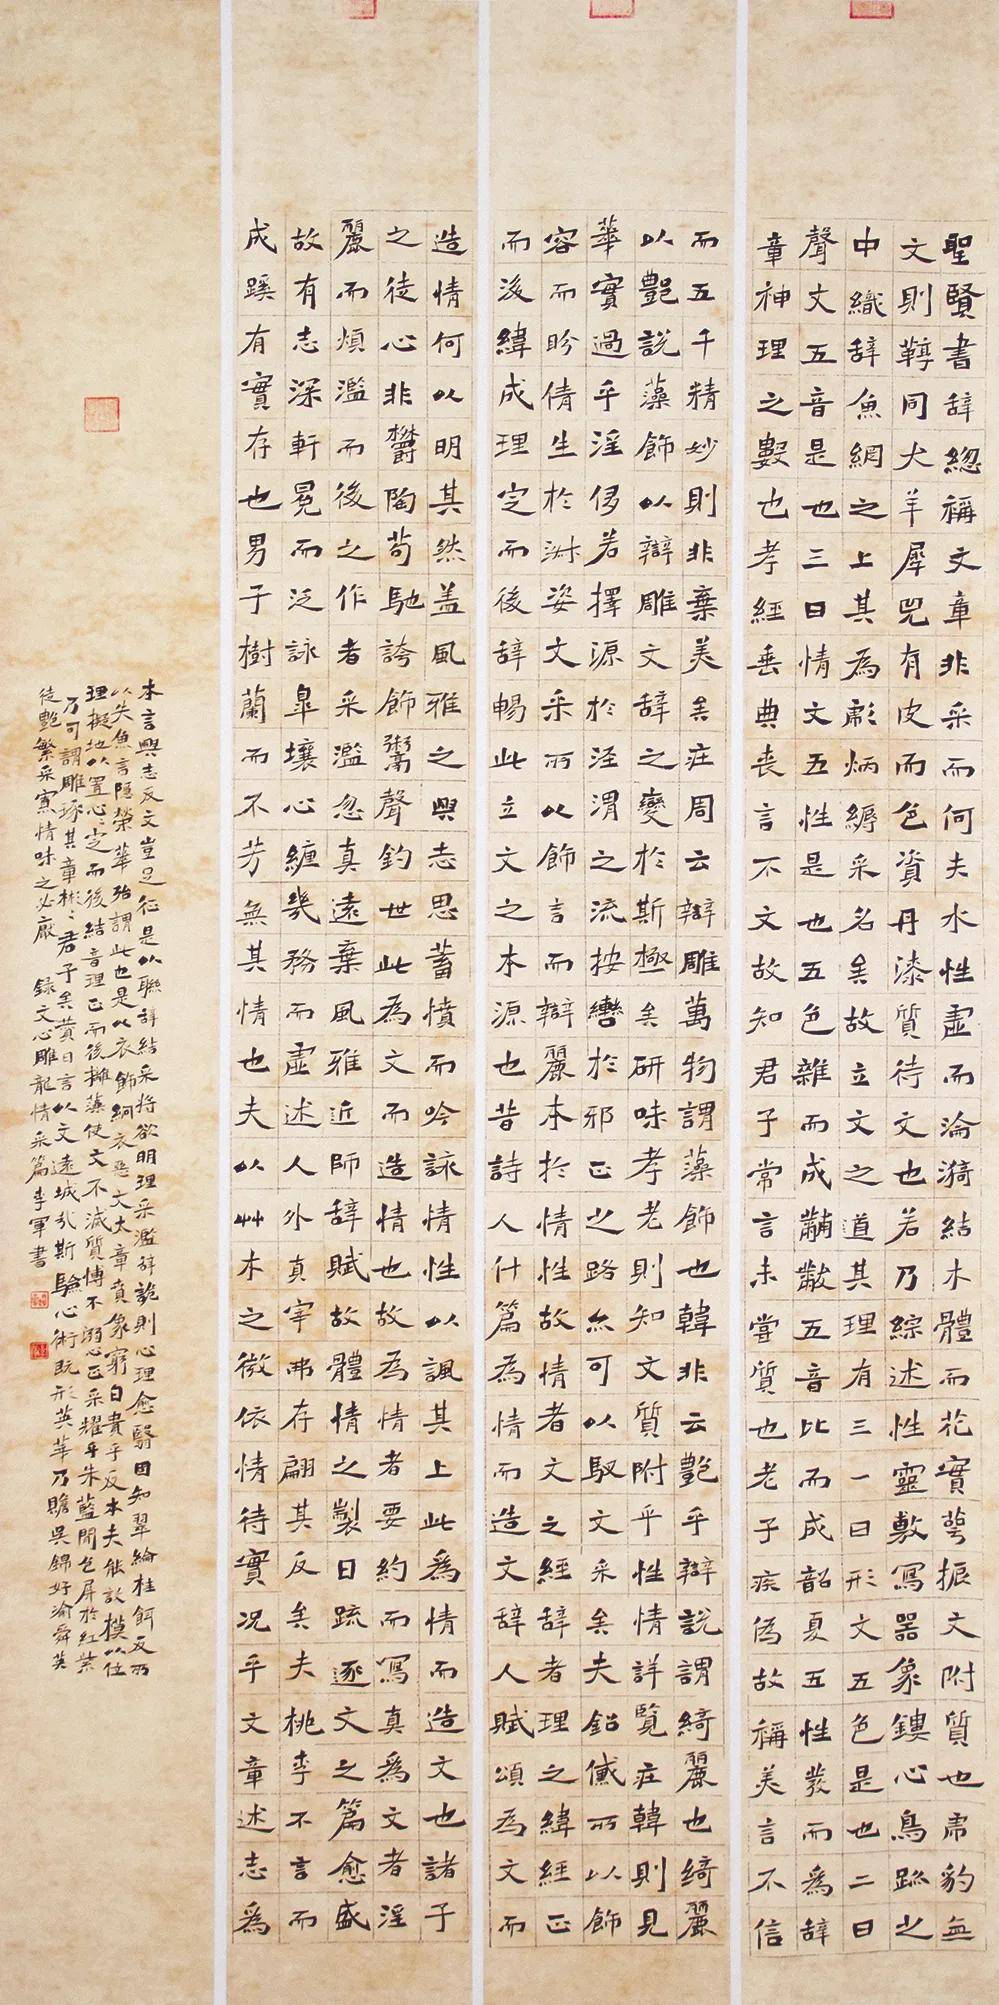 聖賢書辞緫稱文章非采而何夫水性虛而淪漪結木體而花實萼振文附質也虎豹無
文則鞟同犬羊犀兕有皮而色資丹漆質待文也若乃綜述性靈敷寫器象鏤心鳥跡之
中織辞魚網之上其為彪炳縟采名矣故立文之道其理有三一曰形文五色是也二曰
聲文五音是也三曰情文五性是也五色雜而成黼黻五音比而成韶夏五性發而為辞
章神理之數也孝經垂典喪言不文故知君子常言未嘗質也老子疾偽故稱美言不信
而五千精妙則非棄美矣莊周云辯雕萬物謂藻飾也韓非云艷乎辯說謂綺麗也綺麗
以艷說藻飾以辯雕文辞之變於斯極矣研味孝老則知文質附乎性情詳覽莊韓則見
華實過乎淫侈若擇源於涇渭之流按轡於邪正之路亦可以馭文采矣夫鉛黛所以飾
容而盼倩生於淑姿文采所以飾言而辯麗本於情性故情者文之經辞者理之緯經正
而後緯成理定而後辞暢此立文之本源也昔詩人什篇為情而造文辞人賦頌為文而
造情何以明其然盖風雅之興志思蓄憤而吟詠情性以諷其上此為情而造文也諸子
之徒心非欝陶苟馳誇飾鬻聲釣世此為文而造情也故為情者要約而寫真為文者淫
麗而煩濫而後之作者采濫忽真遠棄風雅近師辞賦故體情之製日疏逐文之篇愈盛
故有志深軒冕而泛詠皋壤心纏幾務而虛述人外真宰弗存翩其反矣夫桃李不言而
成蹊有實存也男子樹蘭而不芳無其情也夫以艸木之微依情待實況乎文章述志為
本言與志反文豈足征是以聯辞結采将欲明理采濫辞詭則心理愈翳固知翠綸桂餌反所
以失魚言隱榮華殆謂此也是以衣飾絅衣惡文太章賁象窮白貴乎反本夫能設模以位
理擬地以置心〻定而後結音理正而後摛藻使文不滅質博不溺心正采耀乎朱藍間色屏於紅紫
乃可謂雕琢其章彬〻君子矣贊曰言以文遠誠哉斯驗心術既形英華乃贍吳錦好渝舜英
徒艷繁采寡情味之必厭 錄文心雕龍情采篇李軍書